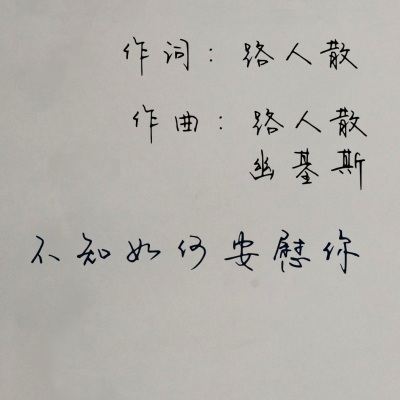 作词：路人散
作曲：路人散
幽基斯
不知如何安慰你